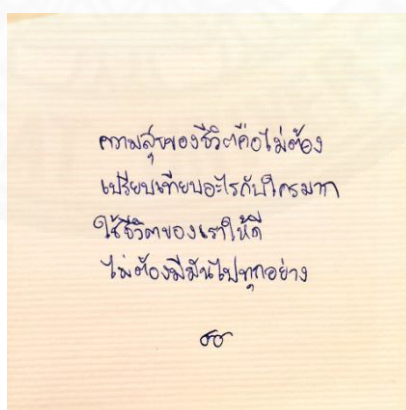 ความสุขของชีวิตคือไม่ต้อง
เปรียบเทียบอะไรกับใครมาก
ใช้ชีวิตของเราให้ดี
ไม่ต้องมีมันไปทุกอย่าง